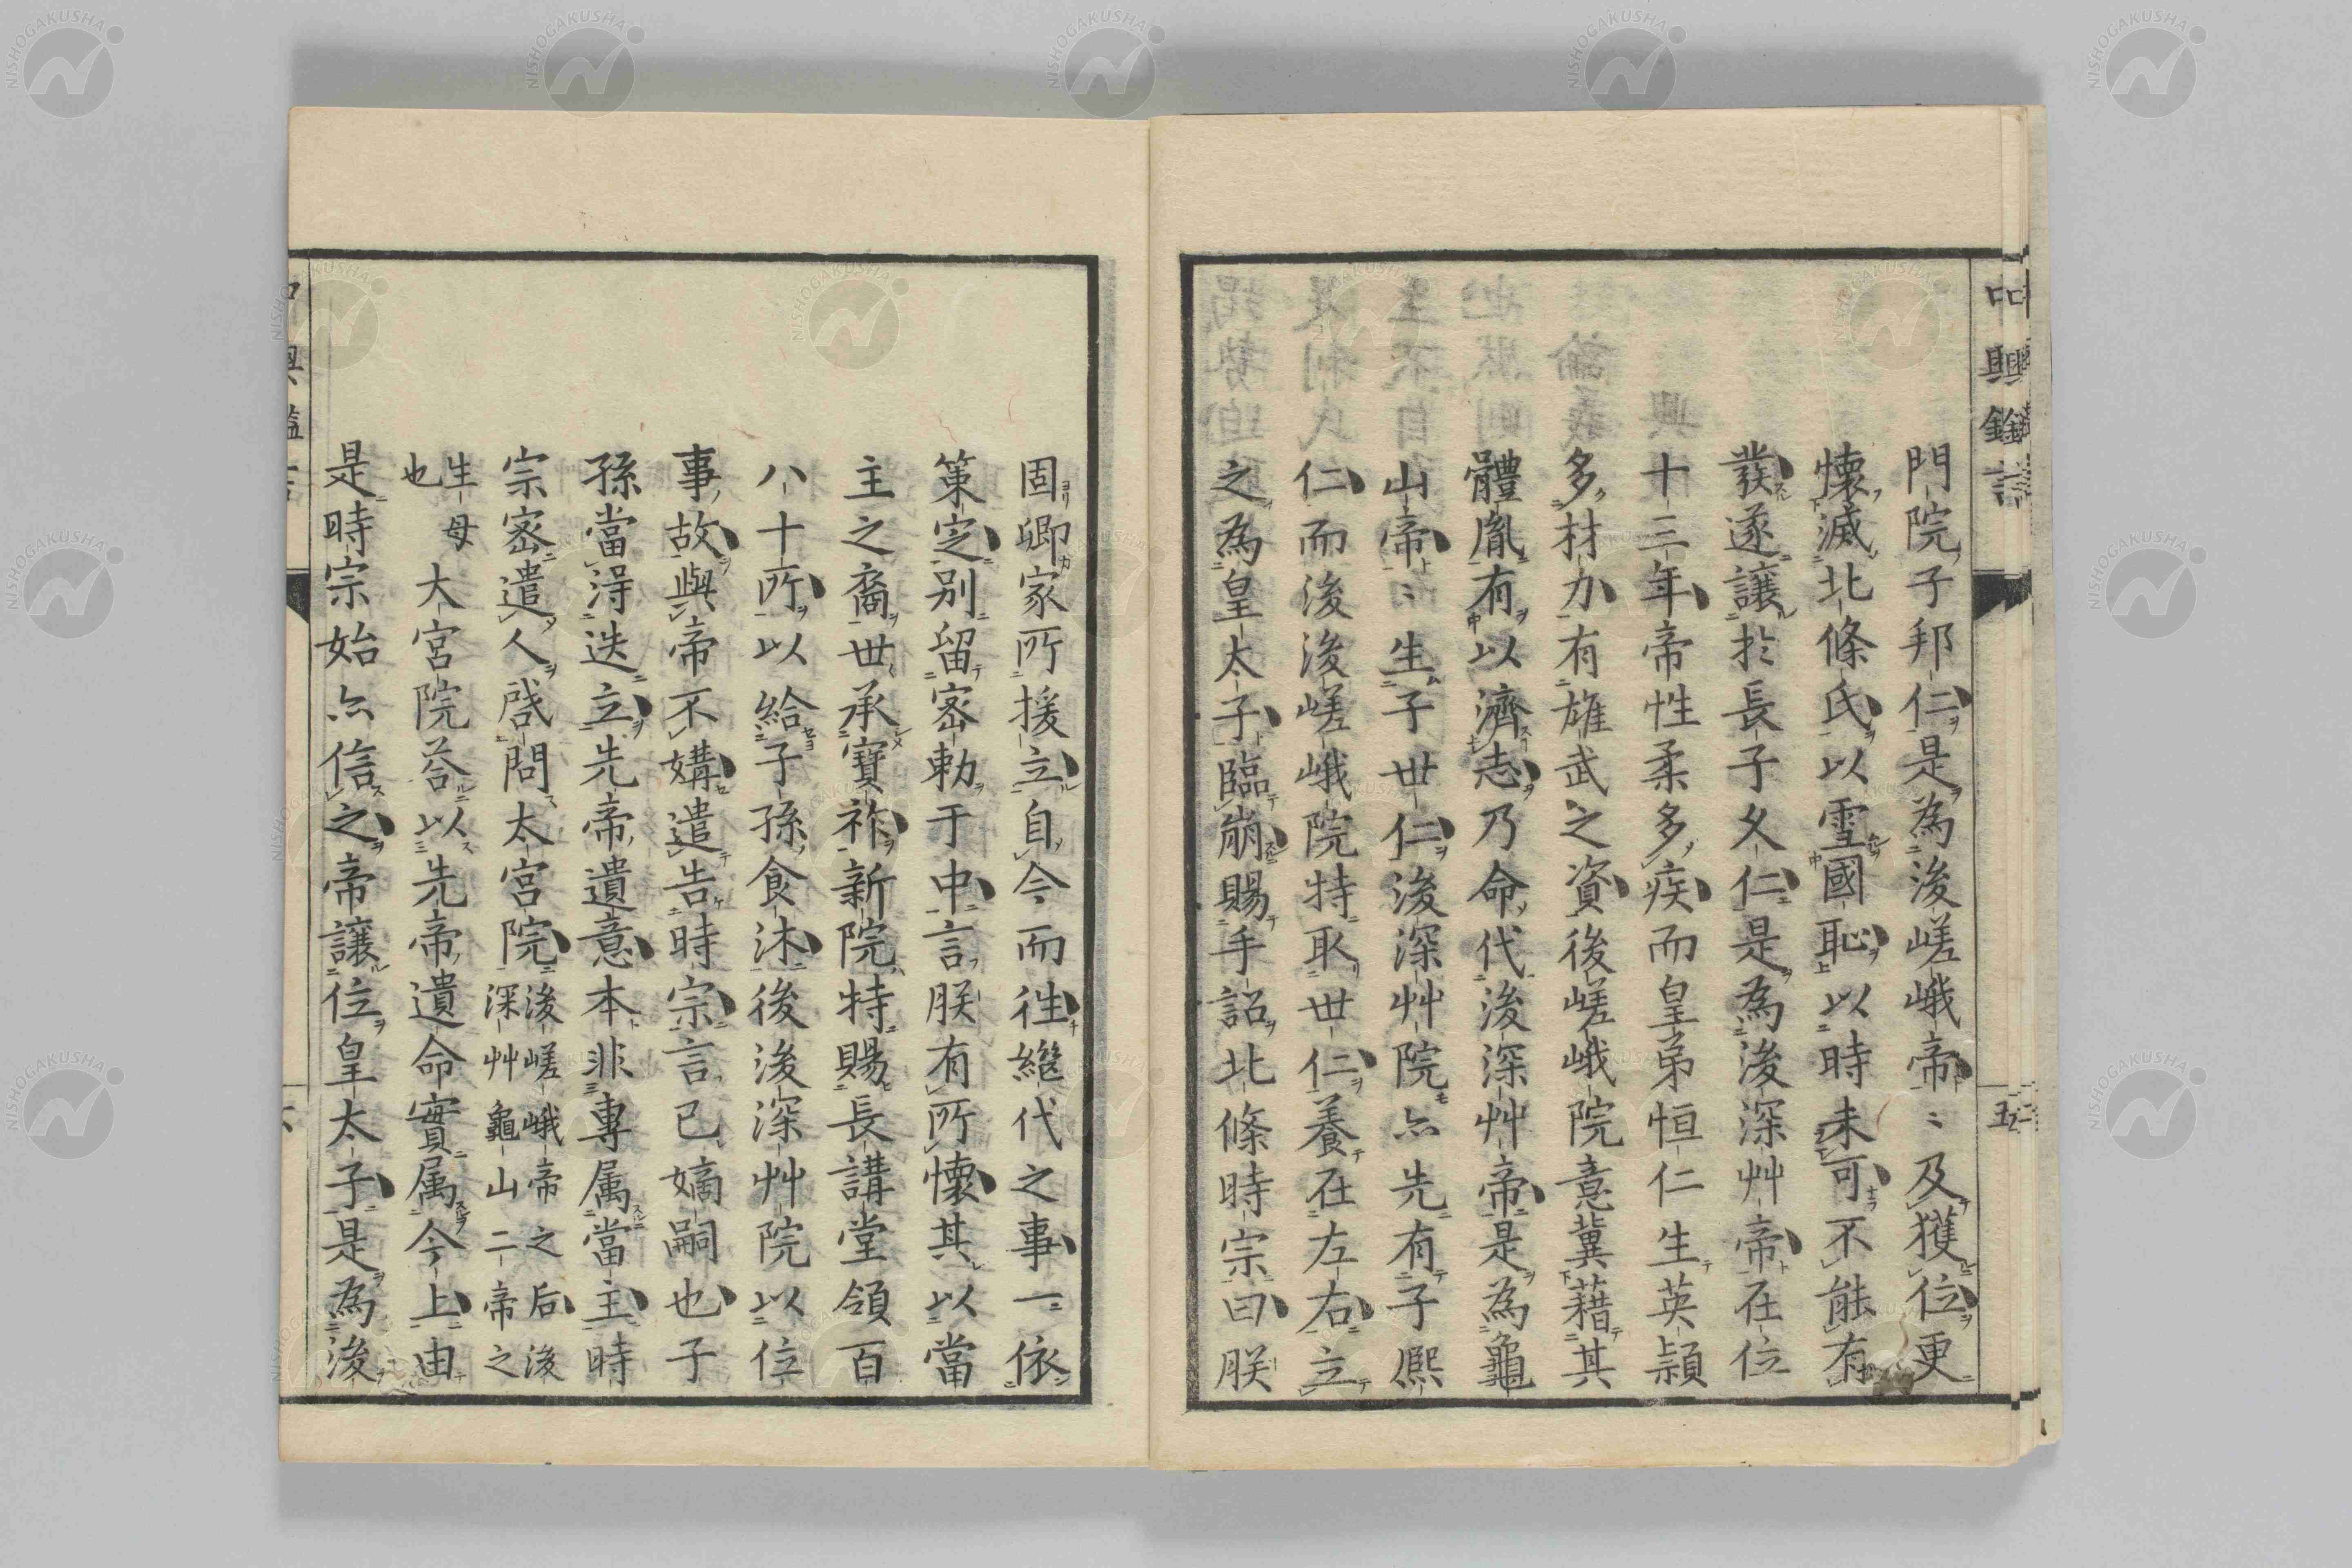 門院子邦仁是為後嵯峨帝〻及獲位更
懷滅北條氏以雪國恥以時未可不能有
發遂讓於長子久仁是為後深艸帝在位
十三年帝性柔多疾而皇弟恒仁生英穎
多材力有雄武之資後嵯峨院意冀藉其
體胤有以濟志乃命代後深艸帝是為龜
山帝〻生子世仁後深艸院亦先有子熙
仁而後後嵯峨院特取世仁養在左右立
之為皇太子臨崩賜手詔北條時宗曰朕
固卿家所援立自今而往繼代之事一依
策定別留密勅于中言朕有所懷其以當
主之裔世承寶祚新院特賜長講堂領百
八十所以給子孫食沐後後深艸院以位
事故與帝不媾遣告時宗言已嫡嗣也子
孫當淂迭立先帝遺意本非專属當主時
宗密遣人啓問太宮院後嵯峨帝之后後
深艸龜山二帝之
生母
也
大宮院荅以先帝遺命實属今上由
是時宗始亦信之帝讓位皇太子是為後
五